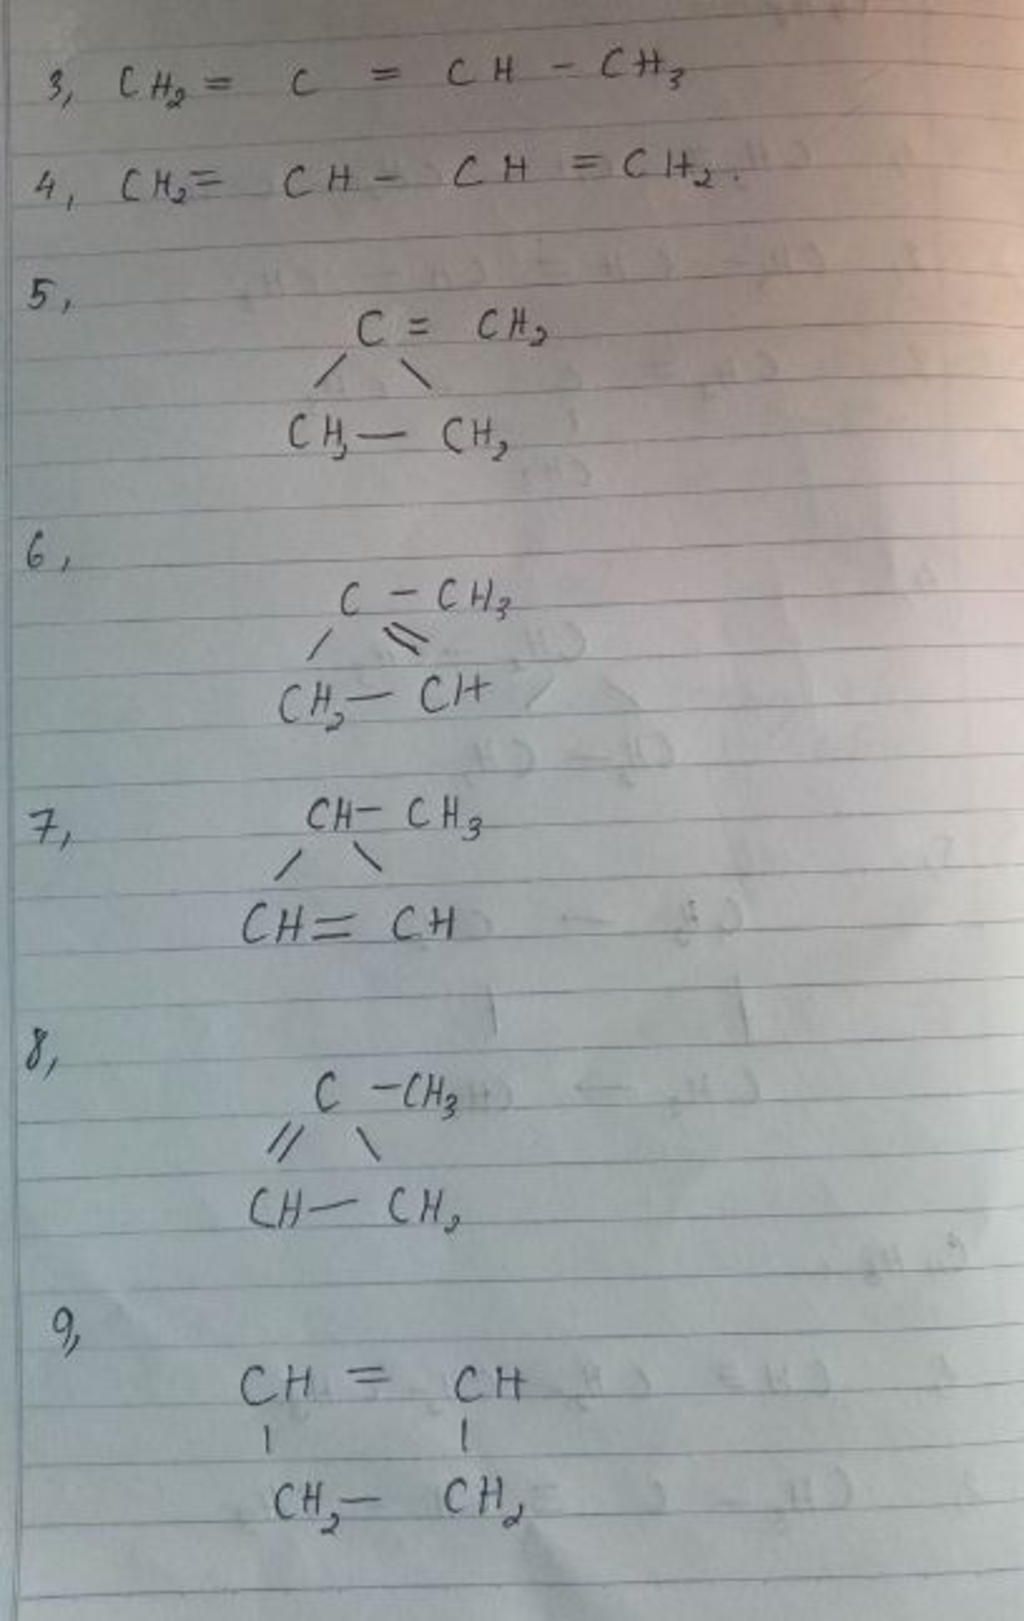 3, CH₂ = C = CH - CH₃
4, CH₂ = CH - CH = CH₂.
5,
C = CH₂
/ \
CH₂ — CH₂
6,
C - CH₃
/ \\
CH₂ — CH
7, CH - CH₃
/ \
CH = CH
8,
C - CH₃
// \
CH — CH₂
9,
CH = CH
| |
CH₂ — CH₂